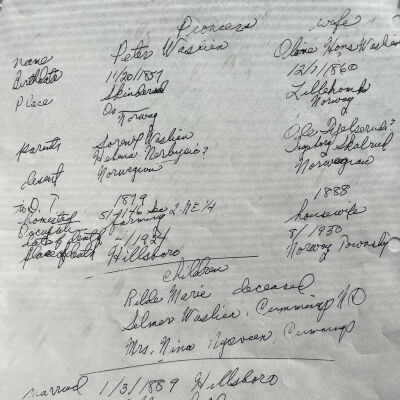 Pioneers wife
name Peter Waslien Oline Hans Waslien
Birthdate 11/20/1857 12/1/1860
Place Lillehamb
Norway Norway
parents Soren Waslien
Helena Nerbysio?
desent Norwegian Norwegian
To D. T 1879 1888
homested Sec 2. NE 1/4
Occupati farming housewife
date of death 4/1924 8/1930
place of death Hillsboro Norway Township
children
Rilde Marie deceased
Selmer Waslien, Cummings ND
Mrs. Nina Nysveen, Cummings
married 1/3/1889 Hillsboro